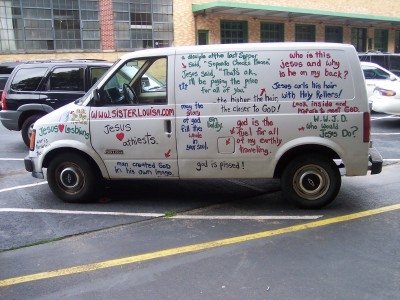 www.SISTERLOUISA.com
Jesus ♥ lesbians
Jesus ♥
atheists.
man created God
in his own image.
a disciple at the Last Supper
said, "Separate Checks Please."
Jesus said, "That's ok,
I'll be paying the price
for all of you."
the higher the hair,
the closer to God!
may the
glory
of god
fill the
whole
in your soul.
god is pissed!
who is this
Jesus and why
is he on my back?
Jesus curls his hair
with Holy Rollers!
Look inside and
god is the
fuel for all
of my earthly
traveling.
W.W.J.D.
Who Should
Jesus Do?